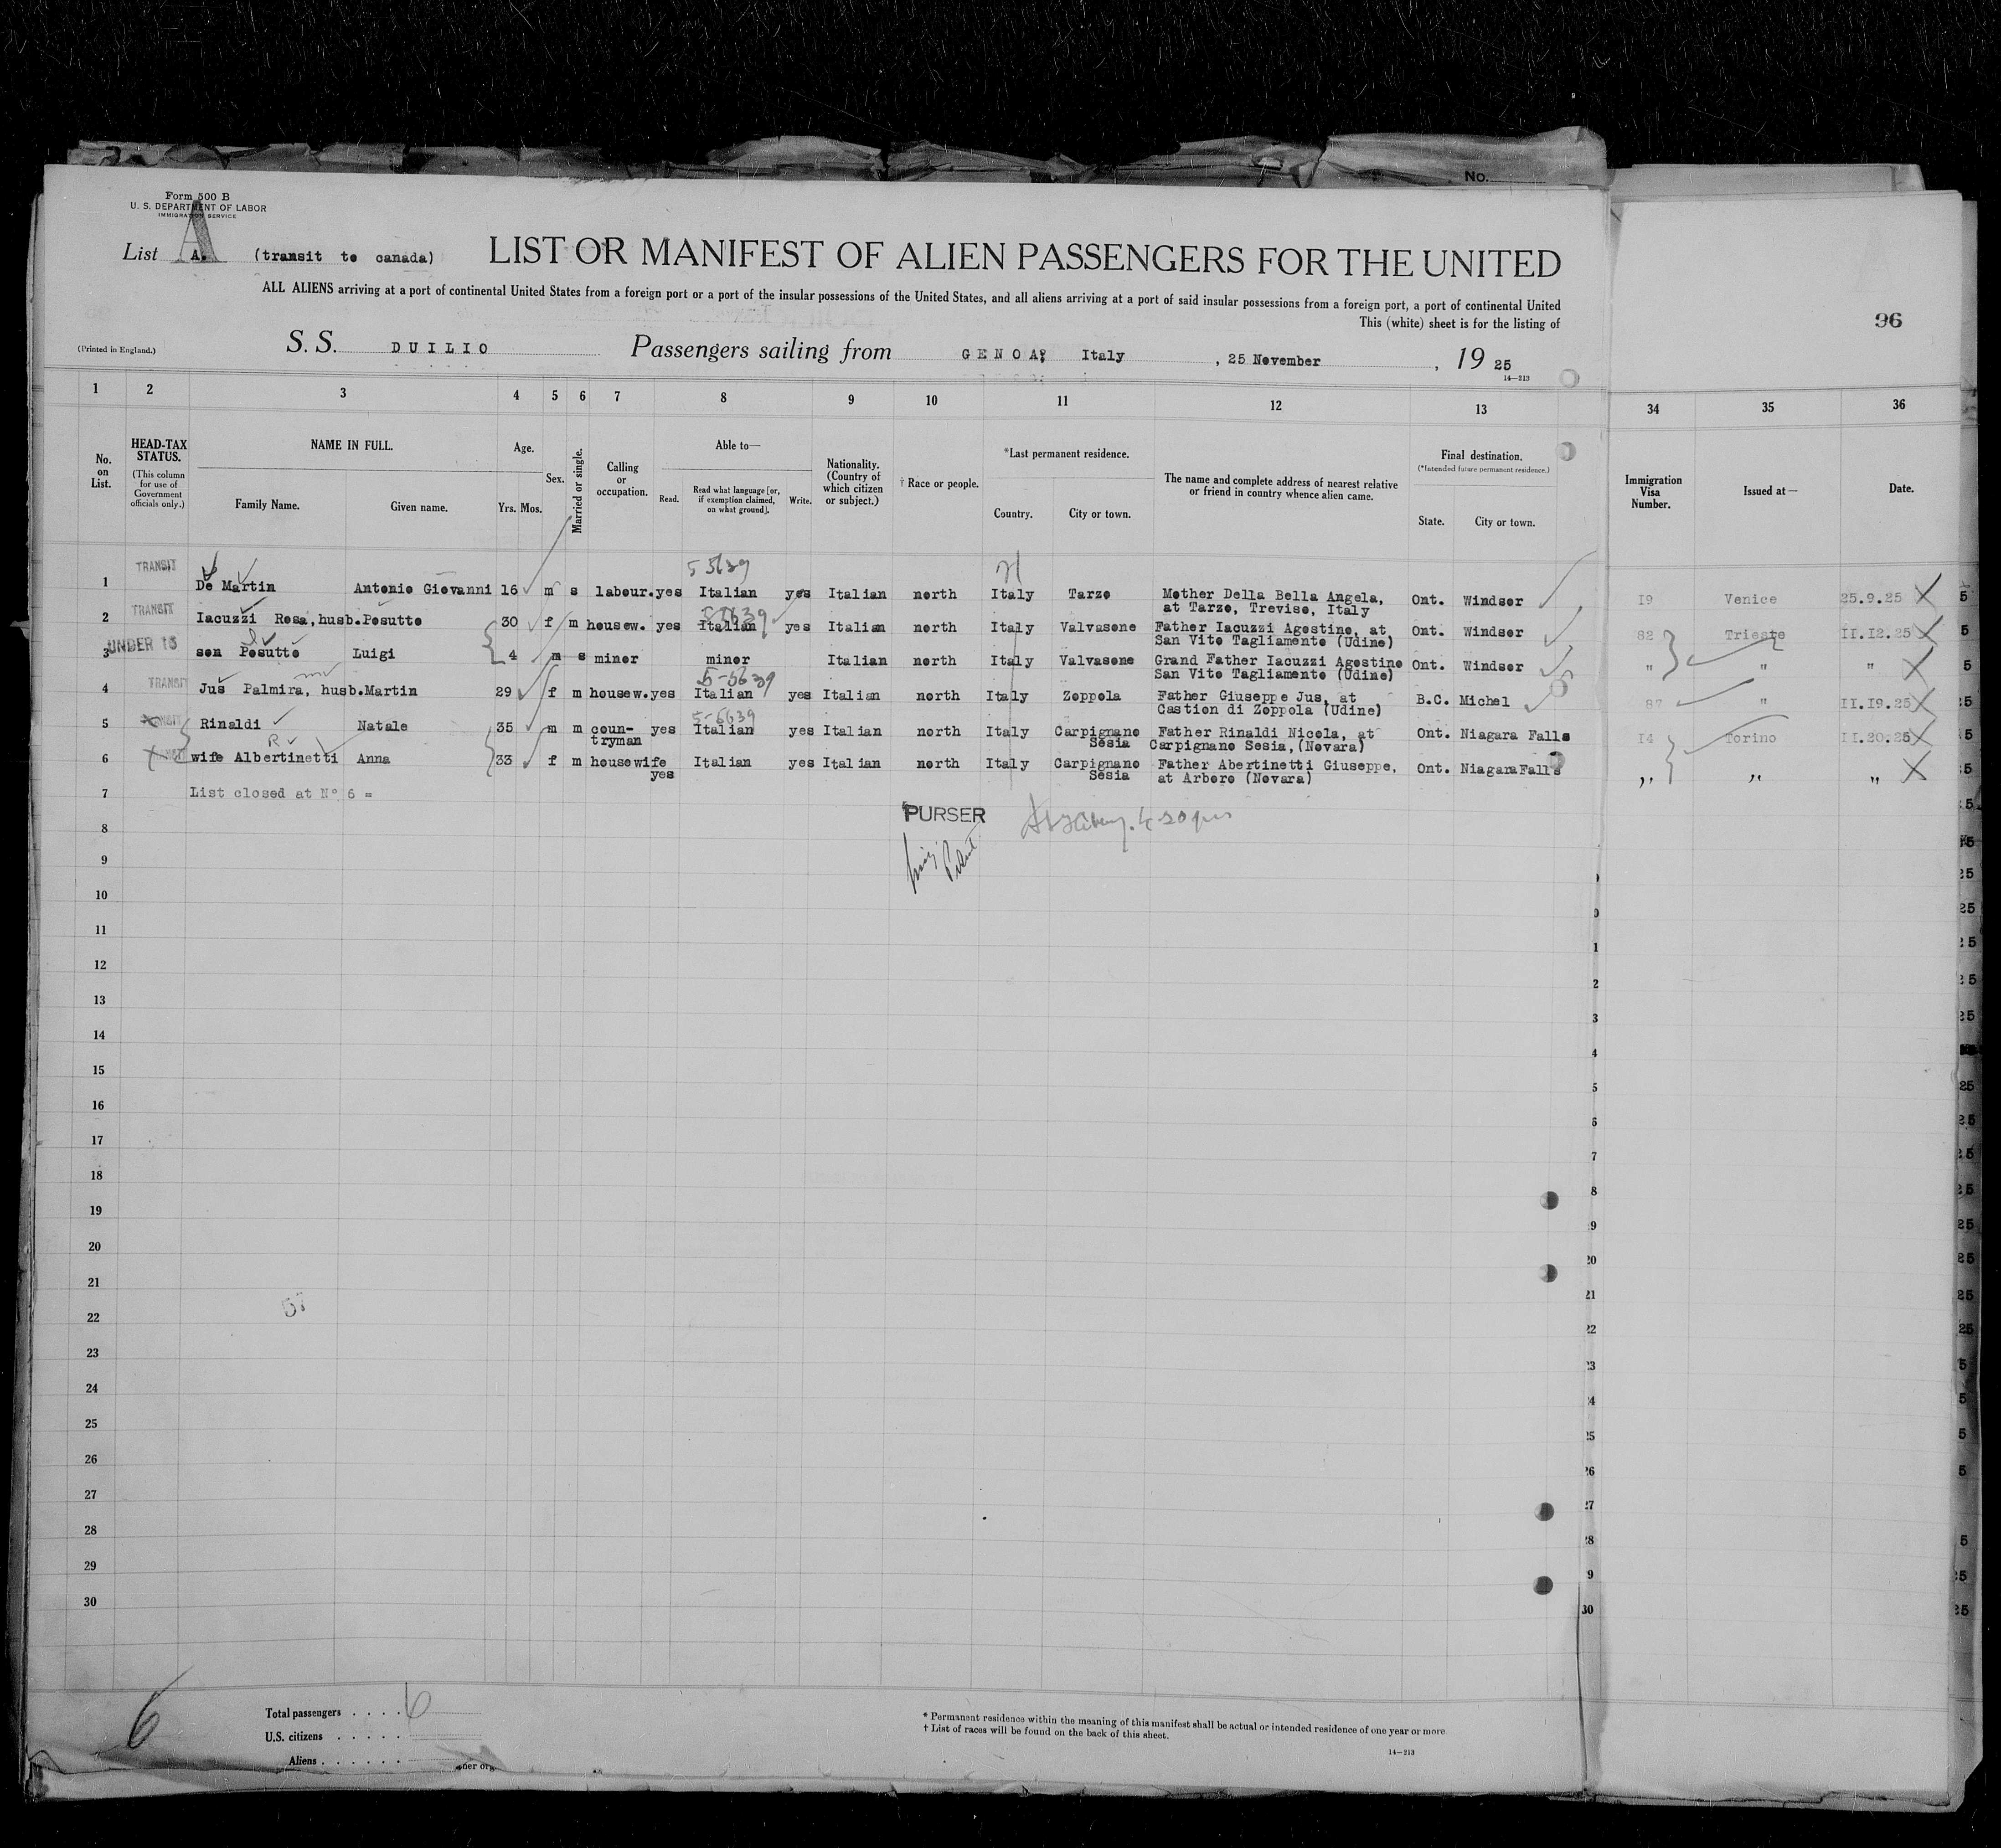 No.
Form 500 B
U. S. DEPARTMENT OF LABOR
IMMIGRATION SERVICE
A
List A. (transit to canada) LIST OR MANIFEST OF ALIEN PASSENGERS FOR THE UNITED
ALL ALIENS arriving at a port of continental United States from a foreign port or a port of the insular possessions of the United States, and all aliens arriving at a port of said insular possessions from a foreign port, a port of continental United
This (white) sheet is for the listing of
96
(Printed in England.) S. S. DUILIO Passengers sailing from GENOA, Italy, 25 November, 19 25
14—213
1 2 3 4 5 6 7 8 9 10 11 12 13 34 35 36
No. on List. HEAD-TAX STATUS. (This column for use of Government officials only.) NAME IN FULL. Family Name. Given name. Age. Yrs. Mos. Sex. Married or single. Calling or occupation. Able to— Read. Read what language [or, if exemption claimed, on what ground]. Write. Nationality. (Country of which citizen or subject.) † Race or people. *Last permanent residence. Country. City or town. The name and complete address of nearest relative or friend in country whence alien came. Final destination. (*Intended future permanent residence.) State. City or town. Immigration Visa Number. Issued at— Date.
5 5639
1 TRANSIT De Martin Antonio Giovanni 16 m s labour. yes Italian yes Italian north Italy Tarzo Mother Della Bella Angela, at Tarzo, Treviso, Italy Ont. Windsor I9 Venice 25.9.25
5-5639
2 TRANSIT Iacuzzi Rosa, husb. Posutto 30 f m housew. yes Italian yes Italian north Italy Valvasone Father Iacuzzi Agostino, at San Vito Tagliamento (Udine) Ont. Windsor 82 Trieste II.I2.25
3 UNDER 16 son Posutto Luigi 4 m s minor minor Italian north Italy Valvasone Grand Father Iacuzzi Agostino San Vito Tagliamento (Udine) Ont. Windsor " " "
5-5639
4 TRANSIT Jus Palmira, husb. Martin 29 f m housew. yes Italian yes Italian north Italy Zoppola Father Giuseppe Jus, at Castion di Zoppola (Udine) B.C. Michel 87 " II.I9.25
5-5639
5 TRANSIT Rinaldi Natale 35 m m coun-tryman yes Italian yes Italian north Italy Carpignano Sesia Father Rinaldi Nicola, at Carpignano Sesia, (Novara) Ont. Niagara Falls I4 Torino II.20.25
6 TRANSIT wife Albertinetti Anna 33 f m housewife yes Italian yes Italian north Italy Carpignano Sesia Father Abertinetti Giuseppe, at Arboro (Novara) Ont. Niagara Falls " " "
7 List closed at N° 6 =
PURSER
8
9
10
11
12
13
14
15
16
17
18
19
20
21
57
22
23
24
25
26
27
28
29
30
6
Total passengers . . . . 6
U.S. citizens . . . . .
Aliens . . . . . .
* Permanent residence within the meaning of this manifest shall be actual or intended residence of one year or more.
† List of races will be found on the back of this sheet.
14—213